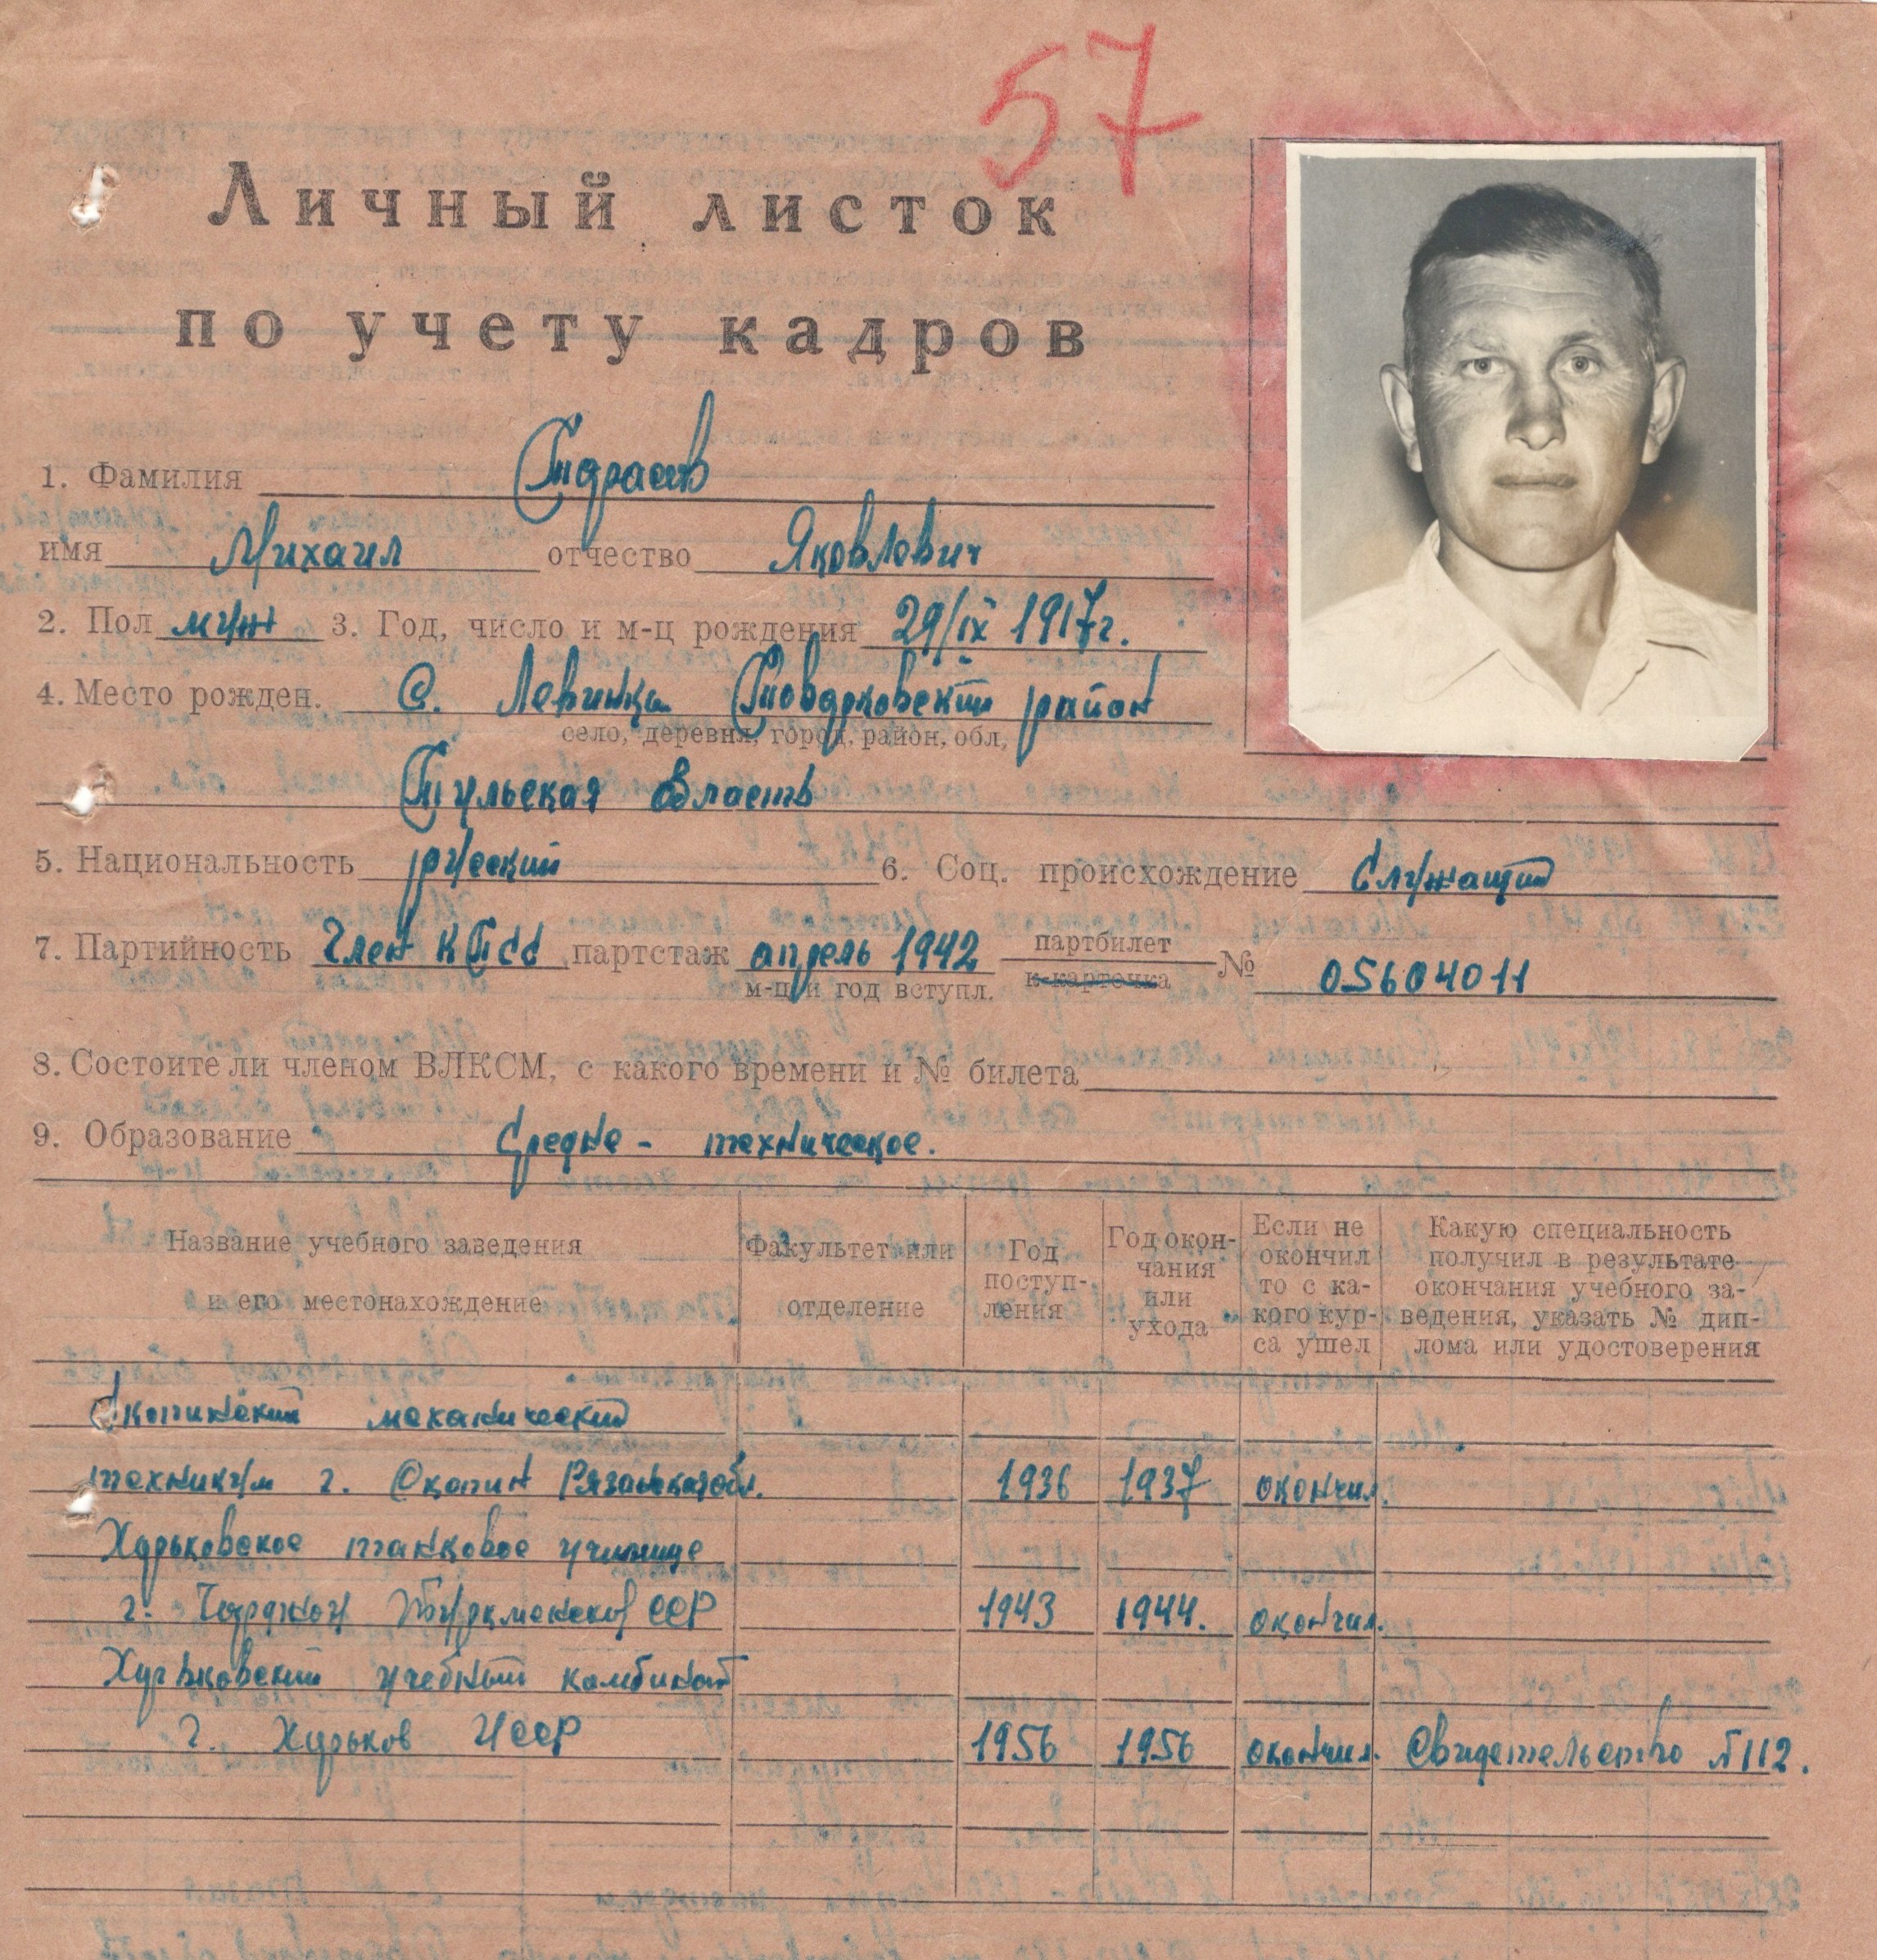 57
Личный листок
по учету кадров
1. Фамилия
имя Михаил отчество Яковлевич
2. Пол муж 3. Год, число и м-ц рождения 29/IX 1917г.
4. Место рожден. С. Левинка Товарковский район
село, деревня, город, район, обл,
Тульская область
5. Национальность русский 6. Соц. происхождение Служащий
7. Партийность Член КПСС партстаж апрель 1942 партбилет к-карточка № 05604011
м-ц и год вступл.
8. Состоите ли членом ВЛКСМ, с какого времени и № билета
9. Образование Средне - техническое.
Название учебного заведения и его местонахождение
Факультет или отделение
Год поступ-ления
Год окон-чания или ухода
Если не окончил то с ка-кого кур-са ушел
Какую специальность получил в результате окончания учебного за-ведения, указать № дип-лома или удостоверения
Скопинский механический
техникум г. Скопин Рязанская обл. 1936 1937 окончил.
Харьковское танковое училище
г. Чарджоу Туркменской ССР 1943 1944. окончил.
Харьковский учебный комбинат
г. Харьков УССР 1956 1956 окончил. Свидетельство №112.